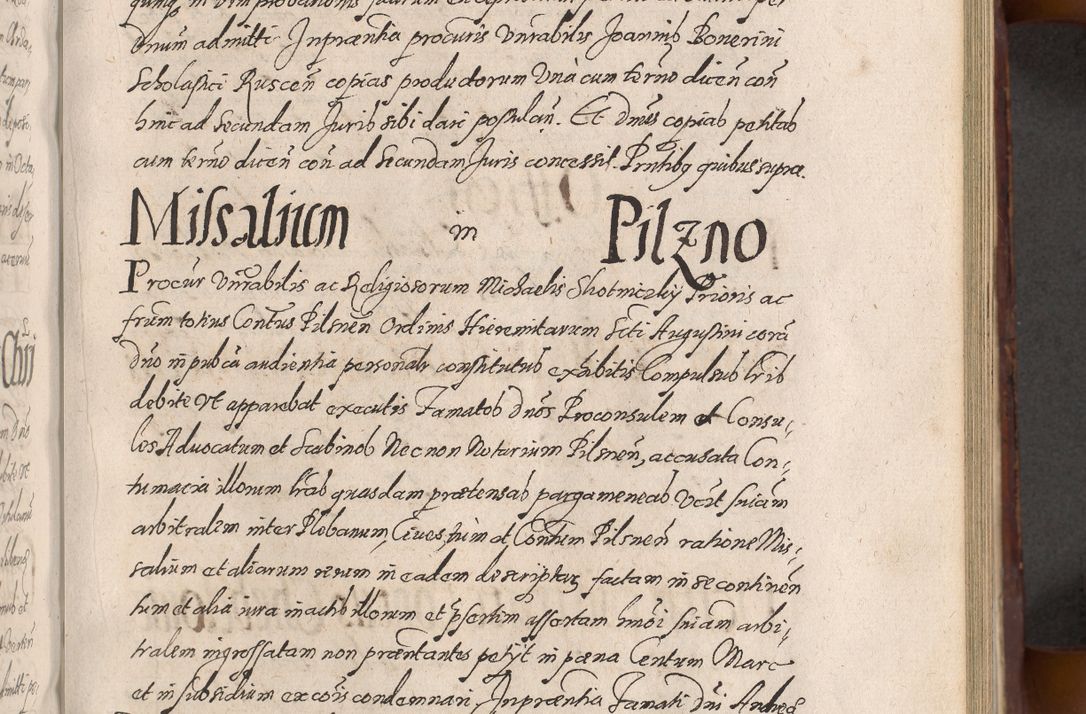 dnum admitti Inpræntia procuris Vnrabilis Joannis Bonerini
Scholastici Ruscen̄ copias productorum Vnà cum terno dicen̄ con̄
hinc ad Secundam Juris sibi dari postulan̄. Et Dnūs copias petitas
cum terno dicen̄ con̄ ad Secundam Juris concessit. Prntibq quibus supra.
Missalium in Pilzno
Procur Vnrabilis ac Religiosorum Michaelis Skotniczky Prioris ac
frum totius Contus Pilsnen̄ Ordinis Hieremitarum Scti Augustini corā
Dno in pubca audientia personalr constitutus exhibitis Compulsub lris
debite vt apparebat executis Famatos Dnos Proconsulem et Consu-
les Advocatum et Scabinos Necnon Notarium Pilsnen̄, accusata Con-
tumacia illorum lras quasdam prætensas pargameneas Vczt sniam
arbitralem inter Plebanum, Ciues, suim et Contum Pilsnen̄ ratione Mis-
salium et aliarum rerum in eadem descriptar factam in se continen̄
tum et alia iura in actis illorum et psertim assortam hmoi sniam arbi-
tralem ingrossatam non præntantes petijt in pæna Centum Marc
et in subsidium excois condemnari, Inpræntia Famati Dni Andreæ